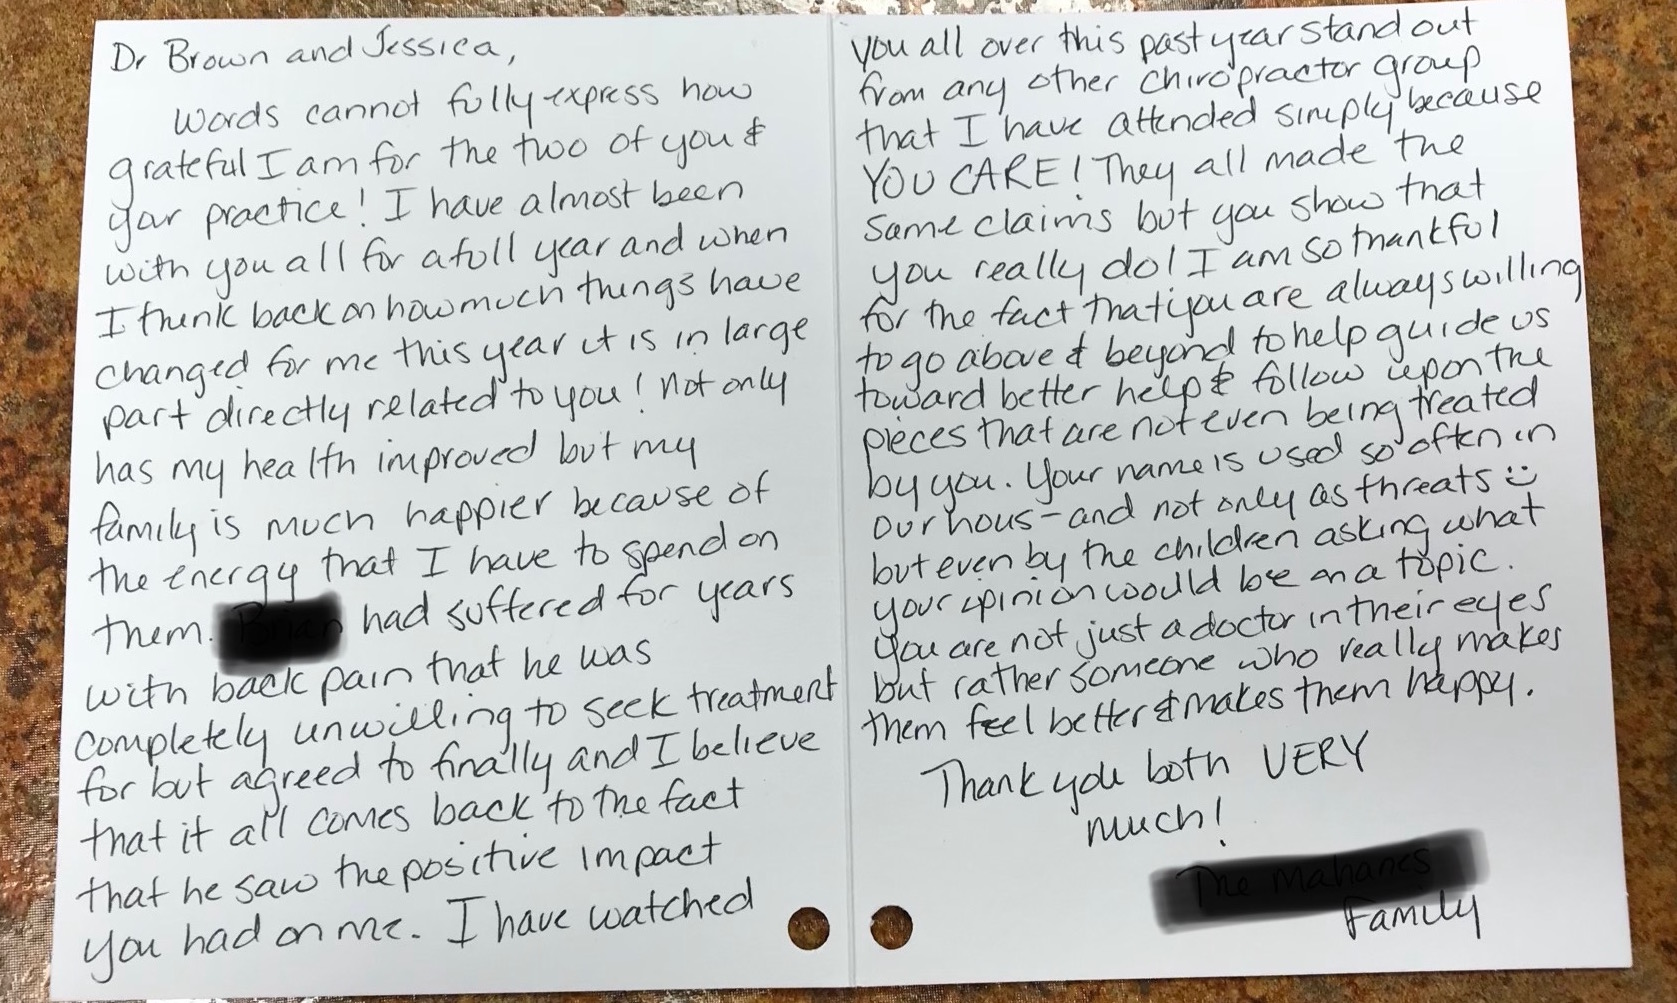 Dr Brown and Jessica,
Words cannot fully express how
grateful I am for the two of you &
your practice! I have almost been
with you all for a full year and when
I think back on how much things have
changed for me this year it is in large
part directly related to you! Not only
has my health improved but my
family is much happier because of
the energy that I have to spend on
them. had suffered for years
with back pain that he was
completely unwilling to seek treatment
for but agreed to finally and I believe
that it all comes back to the fact
that he saw the positive impact
you had on me. I have watched
you all over this past year stand out
from any other chiropractor group
that I have attended simply because
YOU CARE! They all made the
same claims but you show that
you really do! I am so thankful
for the fact that you are always willing
to go above & beyond to help guide us
toward better help & follow up on the
pieces that are not even being treated
by you. Your name is used so often in
our hous - and not only as threats :)
but even by the children asking what
your opinion would be on a topic.
You are not just a doctor in their eyes
but rather someone who really makes
them feel better & makes them happy.
Thank you both VERY
much!
Family